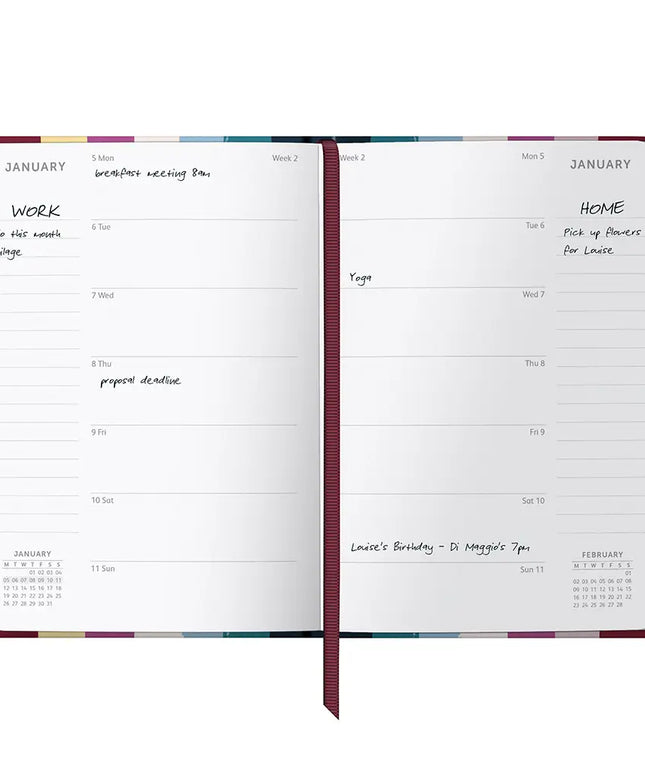 JANUARY
WORK
this month
5 Mon
Week 2
breakfast meeting 8am
6 Tue
7 Wed
8 Thu
proposal deadline
9 Fri
10 Sat
11 Sun
JANUARY
M T W T F S S
01 02 03 04
05 06 07 08 09 10 11
12 13 14 15 16 17 18
19 20 21 22 23 24 25
26 27 28 29 30 31
Week 2
Mon 5
Tue 6
Yoga
Wed 7
Thu 8
Fri 9
Sat 10
Louise's Birthday - Di Maggio's 7pm
Sun 11
JANUARY
HOME
Pick up flowers
for Louise
FEBRUARY
M T W T F S S
01
02 03 04 05 06 07 08
09 10 11 12 13 14 15
16 17 18 19 20 21 22
23 24 25 26 27 28